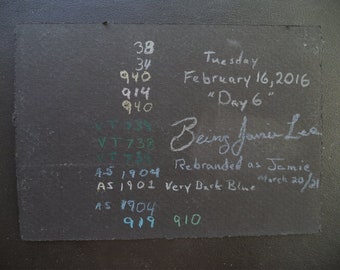 38
34
940
914
940
VT 739
VT 738
AS 1904
AS 1901 Very Dark Blue
AS 1904
919 910
Tuesday
February 16, 2016
"Day 6"
Being Jamie Lee
Rebranded as Jamie
March 20/21